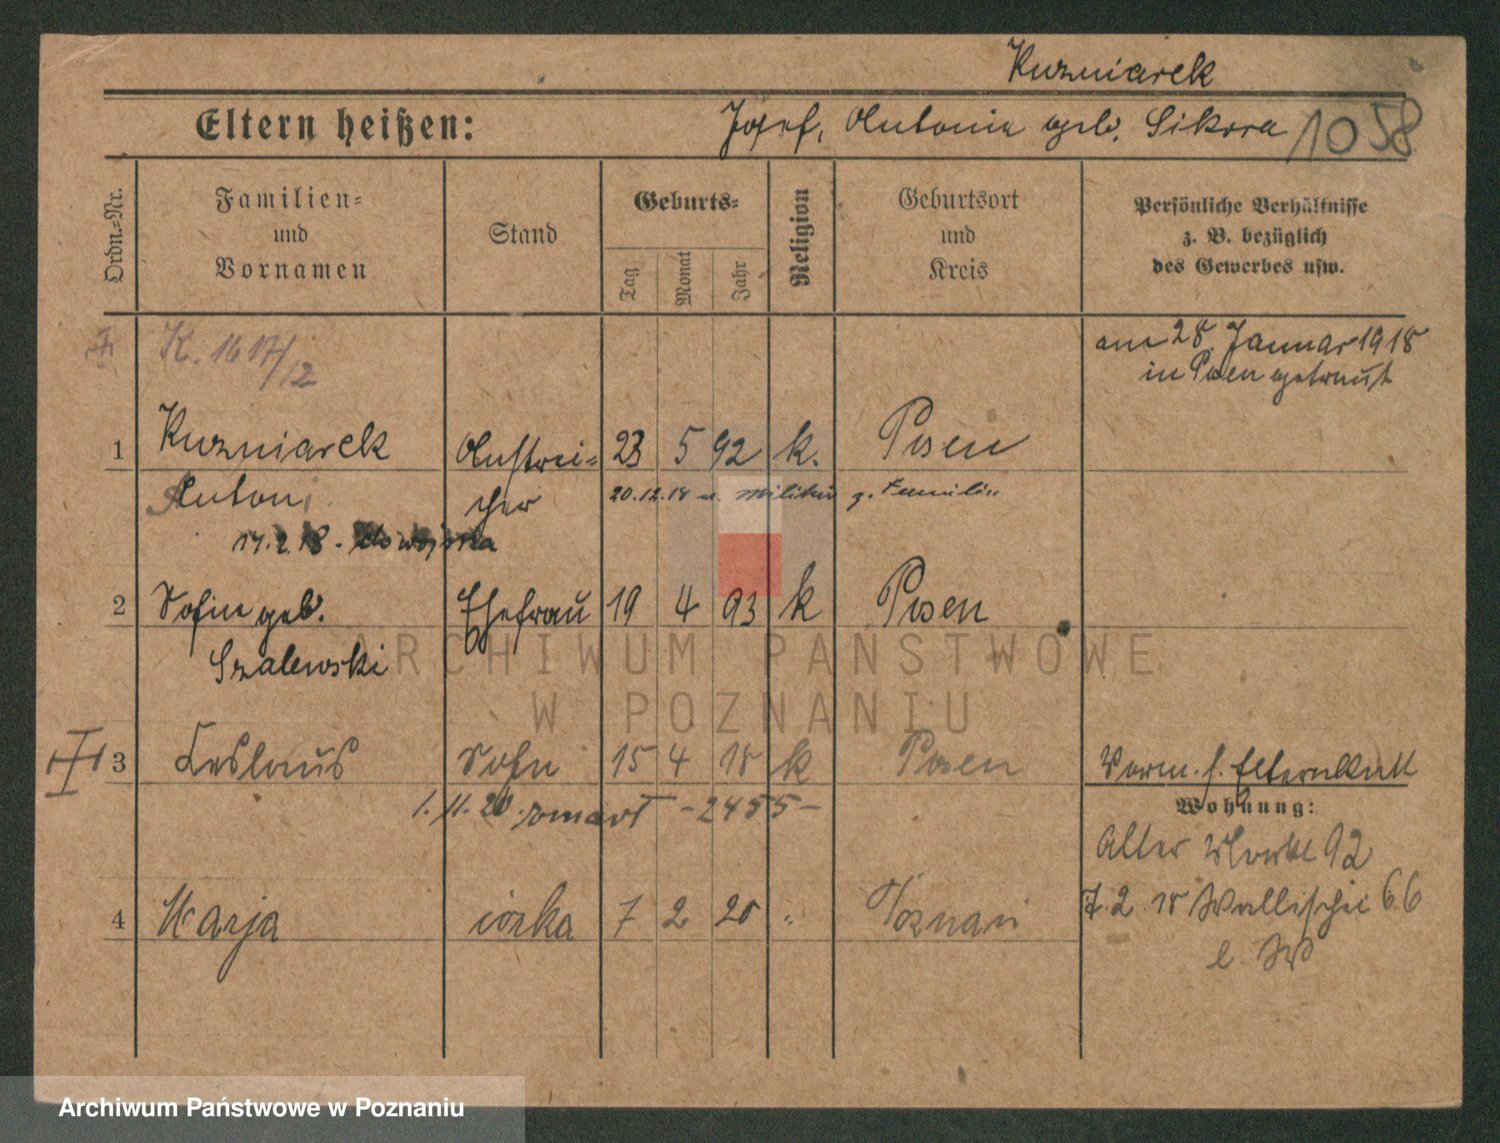 Kuzniarek
Eltern heißen: Josef, Antonie geb. Sikora 1058
Ordn.-Nr.
Familien-
und
Vornamen
Stand
Geburts-
Tag
Monat
Jahr
Religion
Geburtsort
und
Kreis
Persönliche Verhältnisse
z. B. bezüglich
des Gewerbes usw.
K. 1617/12
am 28. Januar 1918
in Posen getraut
1 Kuzniarek Anstrei- 23 5 92 k. Posen
Anton cher 20.12.18 v. Militär z. Familie
17.2.18 - do wojska
2 Sofie geb. Ehefrau 19 4 93 k Posen
Szalewski
3 Leslaus Sohn 15 4 18 k Posen
1.11.20 zmarł - 2455 -
4 Marja córka 7 2 20 " Poznań
Wohnung:
Alter Markt 92
7.2 18 Wallischei 66